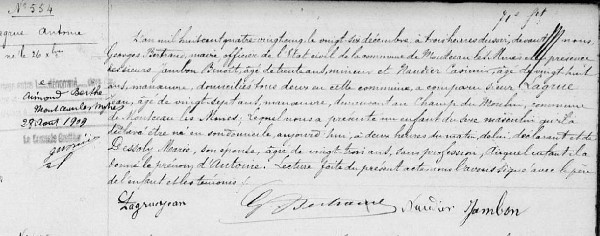 N° 554
Lagrue Antoine
né le 26 Xbre
Aimond Berthe
Montceau les Mines
28 Août 1909
L'an mil huit cent quatre vingt cinq le vingt six décembre, à trois heures du soir, devant nous
Georges Bertrand, maire, officier de l'Etat civil de la commune de Montceau les Mines et en présence
des sieurs Jambon Benoit, âgé de trente ans, mineur et Nandier Casimir, âgé de vingt huit
ans, manœuvre, domiciliés tous deux en cette commune, a comparu sieur Lagrue
Jean, âgé de vingt sept ans, manœuvre, demeurant au Champ du Moulin, commune
de Montceau les Mines, lequel nous a présenté un enfant du sexe masculin qu'il a
déclaré être né en son domicile, aujourd'hui, à deux heures du matin, de lui déclarant et de
Dessoly Marie, son épouse, âgée de vingt trois ans, sans profession, auquel enfant il a
donné le prénom d'Antoine. Lecture faite du présent acte nous l'avons signé avec le père
de l'enfant et les témoins.
Lagrue Jean G. Bertrand Nandier Jambon